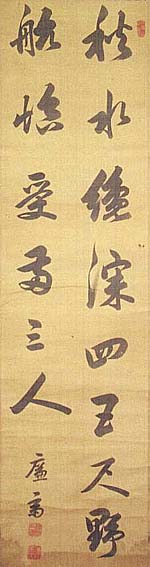 秋水纔深四五尺野
航恰受兩三人